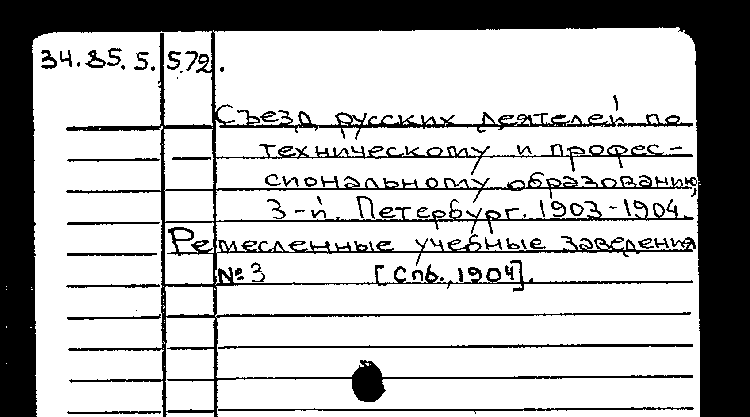 34.85.5.572.
Съезд русских деятелей по
техническому и профес-
сиональному образованию
3-й. Петербург. 1903-1904.
Ремесленные учебные заведения
№ 3 [Спб., 1904].